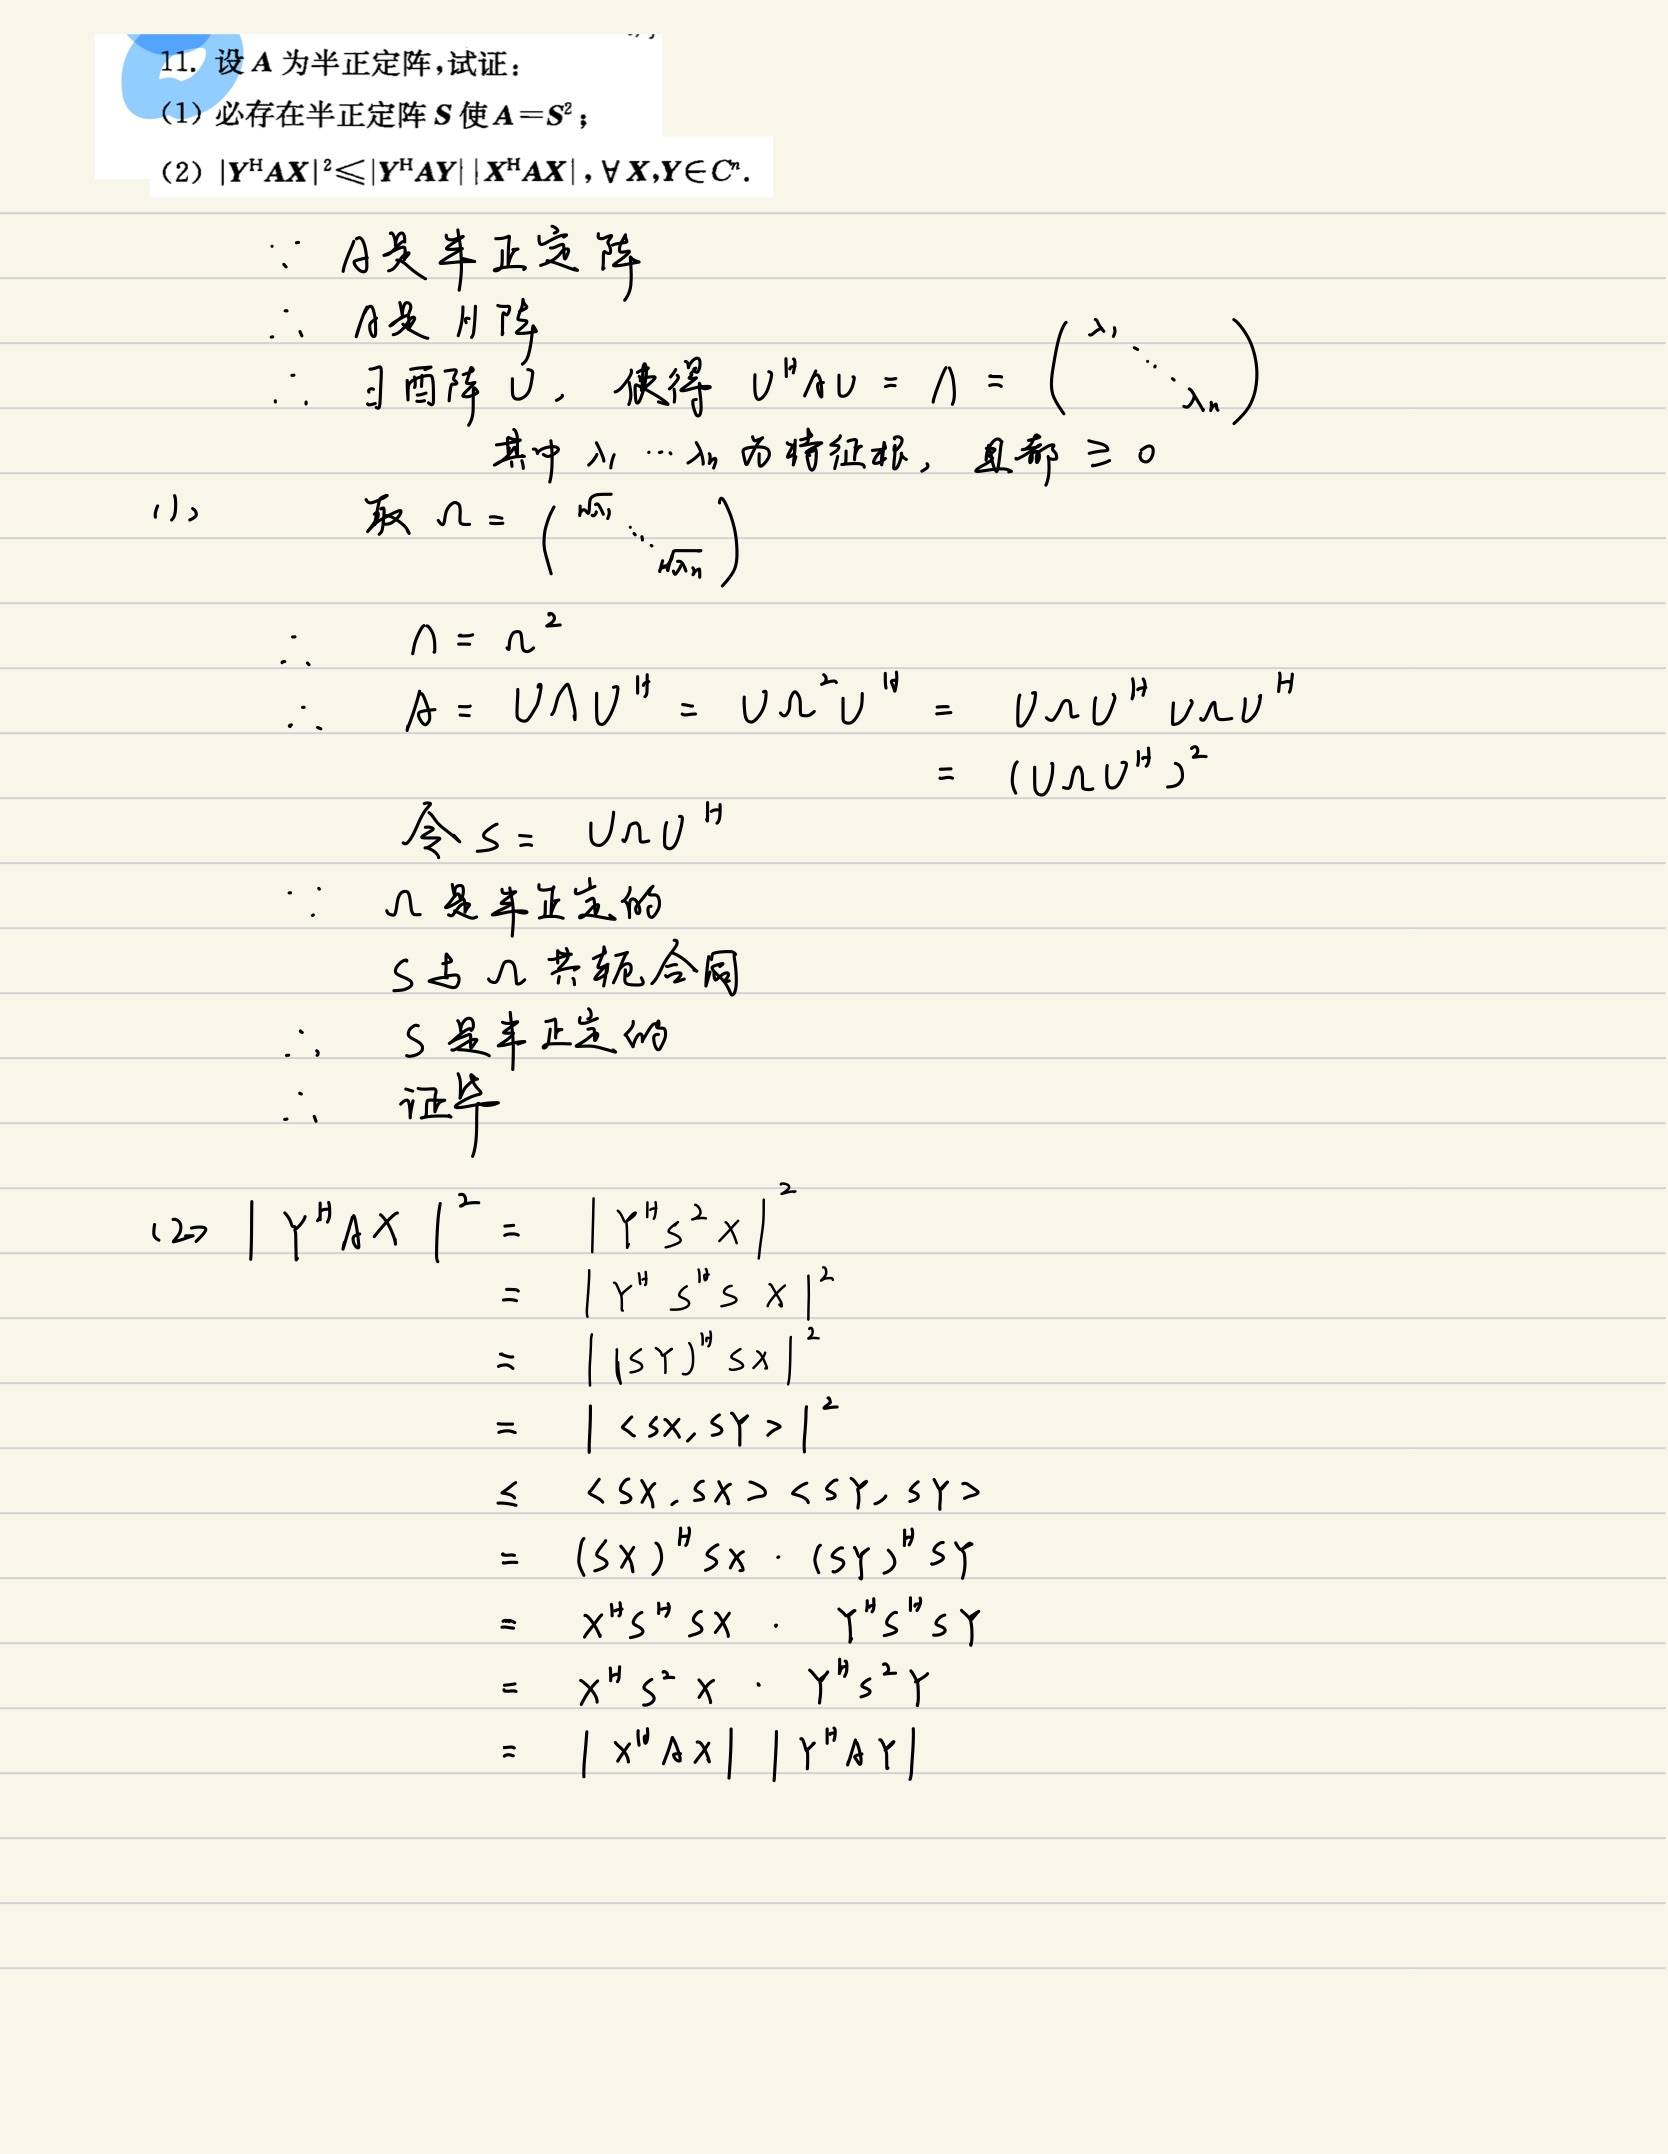 11. 设 A 为半正定阵,试证:
(1) 必存在半正定阵 S 使 A=S²;
(2) |YᴴAX|²≤|YᴴAY||XᴴAX|,∀X,Y∈Cⁿ.
∵ A是半正定阵
∴ A是H阵
∴ ∃酉阵U, 使得 UᴴAU = Λ = (λ₁ ⋱ λₙ)
其中 λ₁ … λₙ 为特征根, 且都 ≥ 0
(1) 取 Ω = (√λ₁ ⋱ √λₙ)
∴ Λ = Ω²
∴ A = UΛUᴴ = UΩ²Uᴴ = UΩUᴴUΩUᴴ
= (UΩUᴴ)²
令 S = UΩUᴴ
∵ Ω是半正定的
S与Ω共轭合同
∴ S是半正定的
∴ 证毕
(2) |YᴴAX|² = |YᴴS²X|²
= |YᴴSᴴSX|²
= |(SY)ᴴSX|²
= |<SX,SY>|²
≤ <SX,SX><SY,SY>
= (SX)ᴴSX · (SY)ᴴSY
= XᴴSᴴSX · YᴴSᴴSY
= XᴴS²X · YᴴS²Y
= |XᴴAX| |YᴴAY|